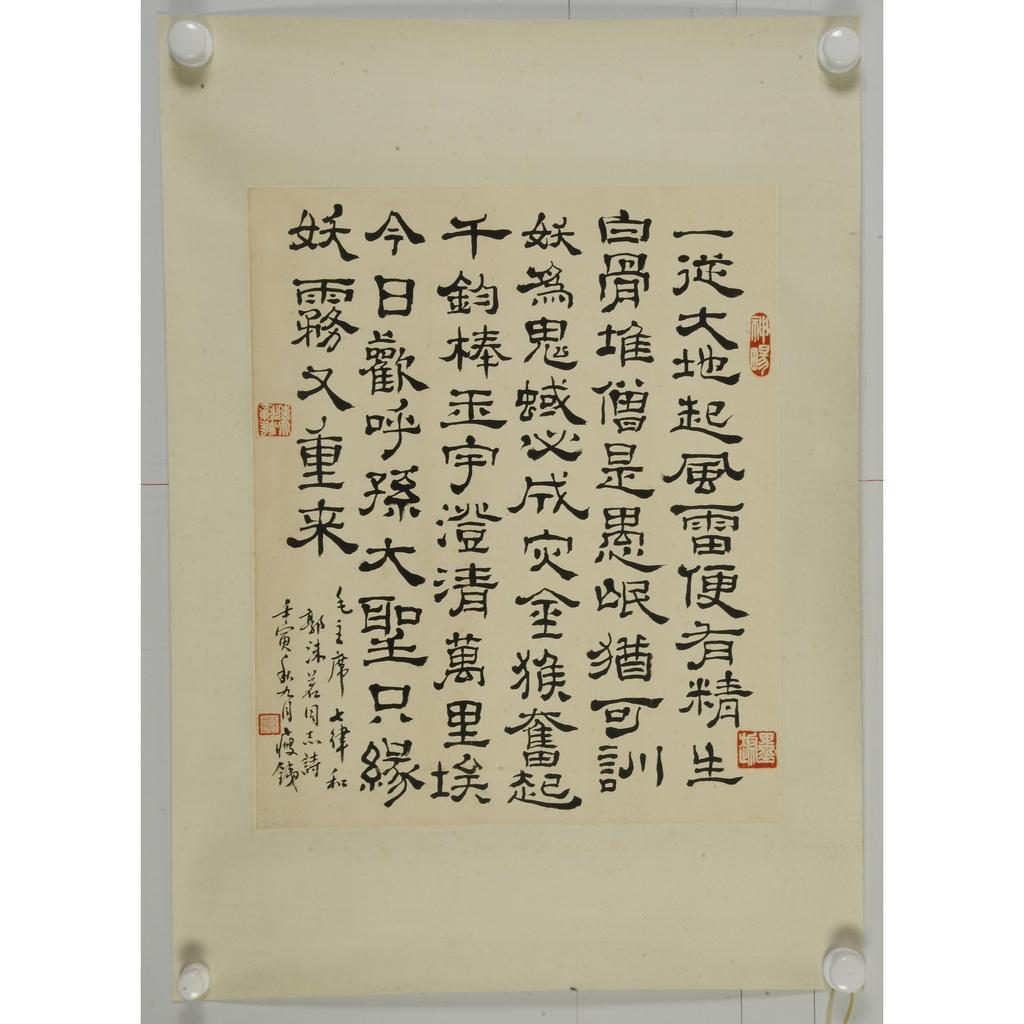 一從大地起風雷便有精生
白骨堆僧是愚氓猶可訓
妖為鬼蜮必成灾金猴奮起
千鈞棒玉宇澄清萬里埃
今日歡呼孫大聖只緣
妖霧又重来
毛主席七律和
郭沫若同志詩
壬寅秋九月瘦鐵